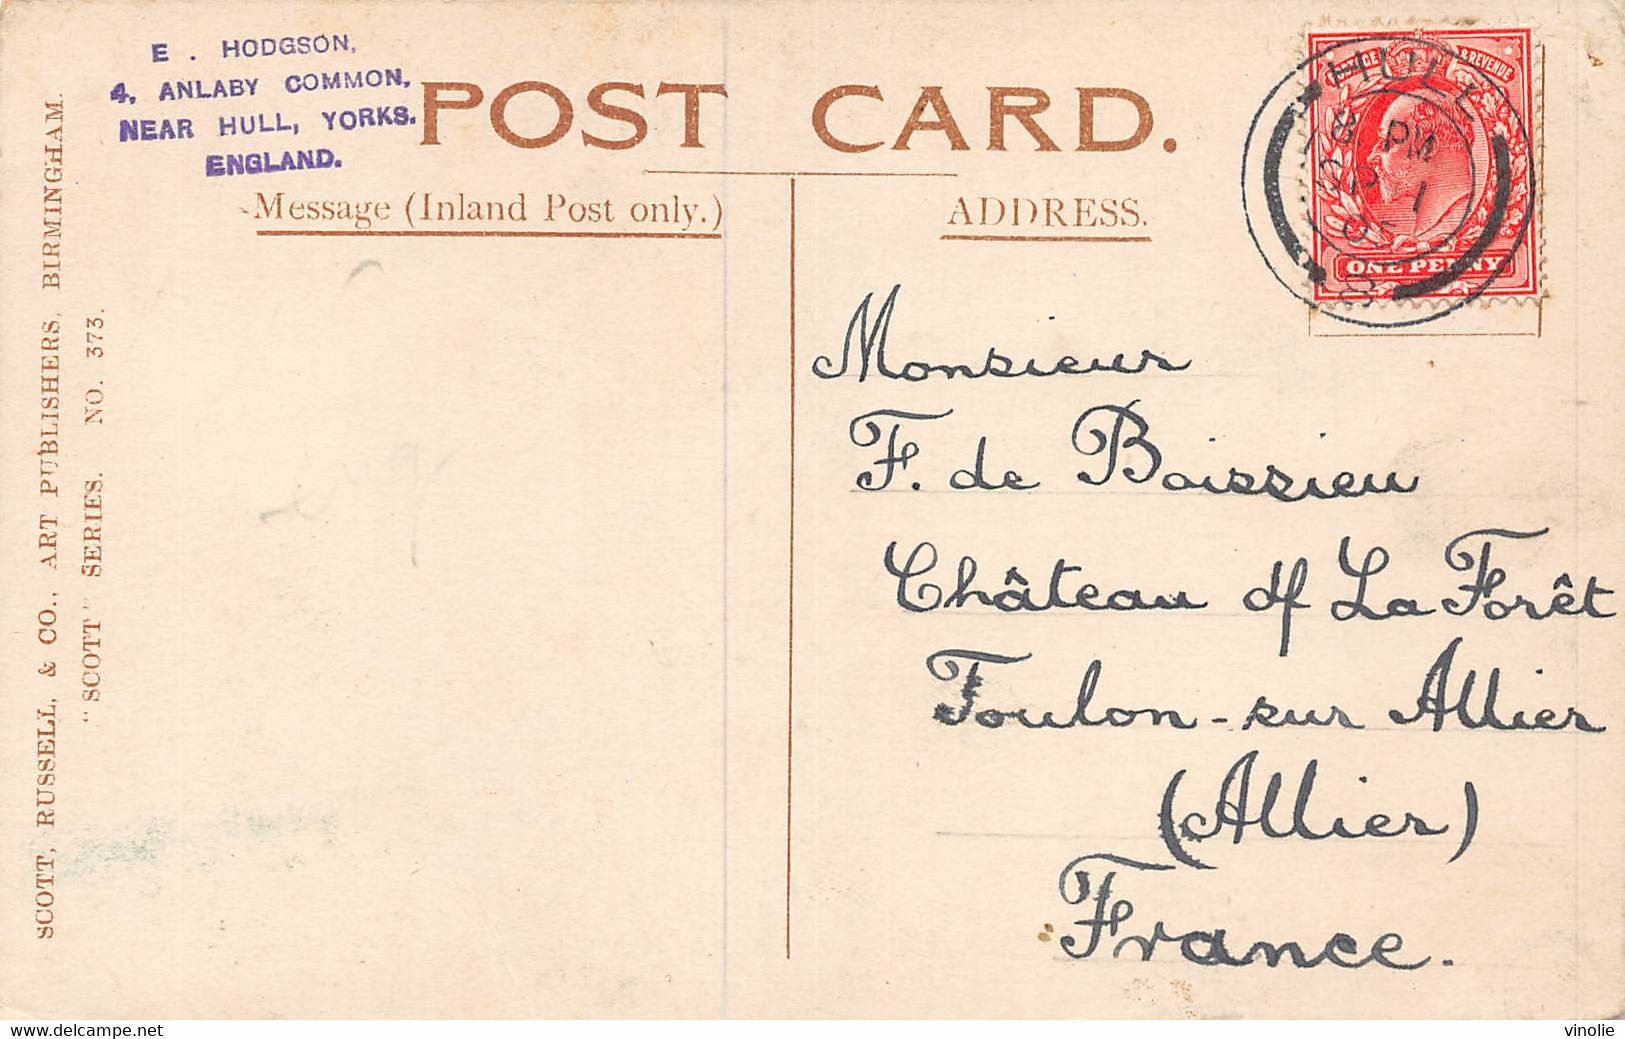 E. HODGSON,
4, ANLABY COMMON,
NEAR HULL, YORKS.
ENGLAND.
POST CARD.
Message (Inland Post only.)
ADDRESS.
SCOTT, RUSSELL, & CO., ART PUBLISHERS, BIRMINGHAM.
"SCOTT" SERIES. NO. 373.
POSTAGE & REVENUE
ONE PENNY
HULL
8 PM
Monsieur
F. de Boissieu
Château de La Forêt
Toulon-sur Allier
(Allier)
France.
www.delcampe.net
vinolie